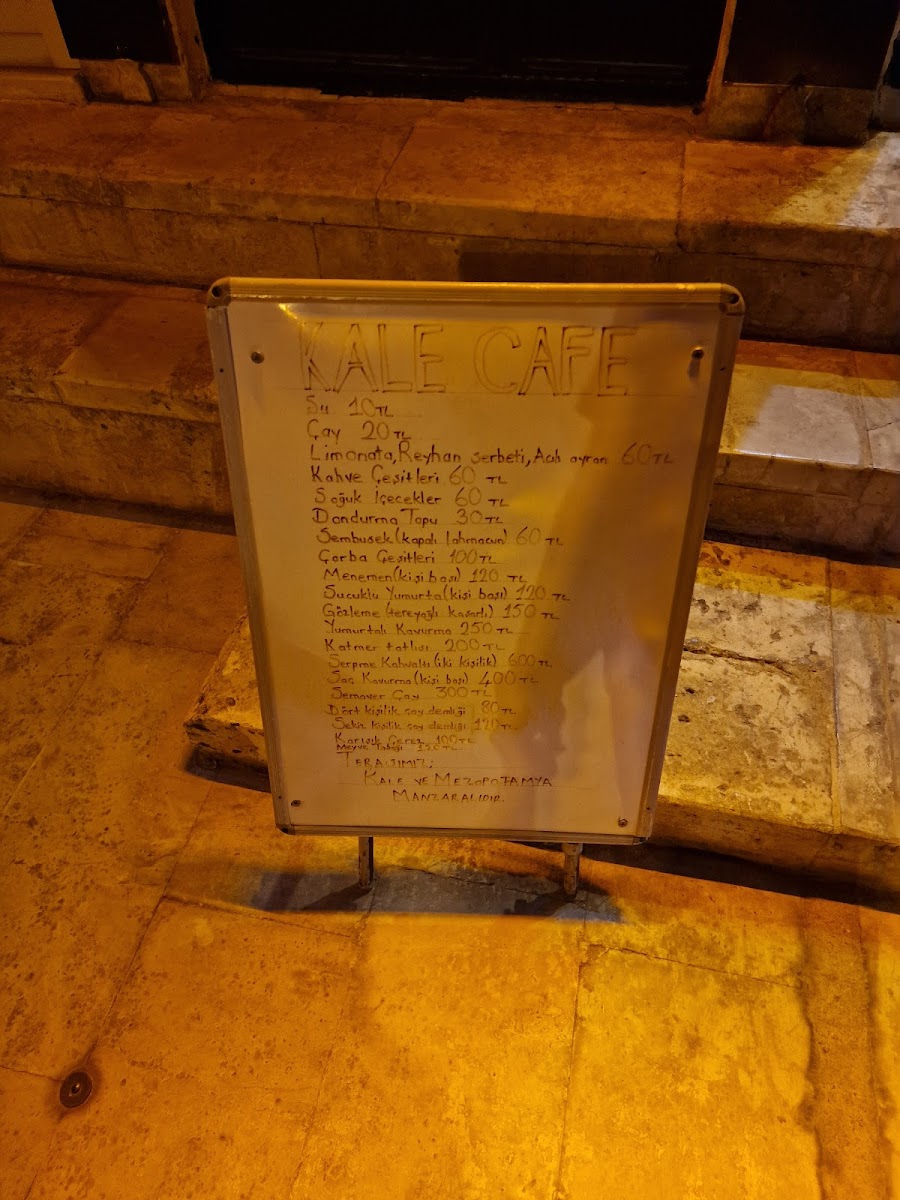 KALE CAFE
Su 10 TL
Çay 20 TL
Limonata, Reyhan şerbeti, Acılı ayran 60 TL
Kahve Çeşitleri 60 TL
Soğuk İçecekler 60 TL
Dondurma Topu 30 TL
Sembusek (kapalı lahmacun) 60 TL
Çorba Çeşitleri 100 TL
Menemen (kişi başı) 120 TL
Sucuklu Yumurta (kişi başı) 120 TL
Gözleme (tereyağlı kaşarlı) 150 TL
Yumurtalı Kavurma 250 TL
Katmer tatlısı 200 TL
Serpme Kahvaltı (iki kişilik) 600 TL
Saç Kavurma (kişi başı) 400 TL
Semaver Çay 300 TL
Dört kişilik çay demliği 80 TL
Sekiz kişilik çay demliği 120 TL
Karışık Çerez 100 TL
Meyve Tabağı 150 TL
TERASIMIZ;
KALE VE MEZOPOTAMYA
MANZARALIDIR.